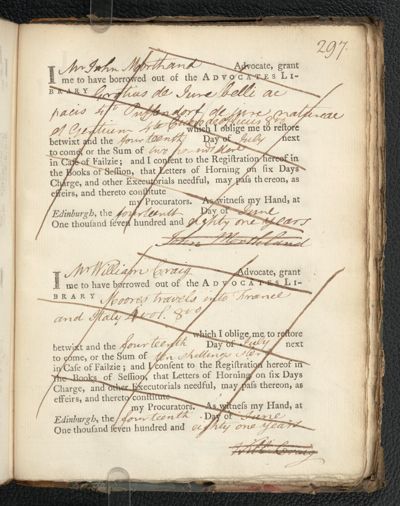 297
I Mr John Morthland Advocate, grant
me to have borrowed out of the ADVOCATES LI-
BRARY Grotius de Jure belli ac
pacis 4to Puffendorf de jure naturae
et Gentium 4to de officio 8vo
which I oblige me to restore
betwixt and the fourteenth Day of July next
to come, or the Sum of two pounds
in Caſe of Failzie; and I conſent to the Regiſtration hereof in
the Books of Seſſion, that Letters of Horning on ſix Days
Charge, and other Executorials needful, may paſs thereon, as
effeirs, and thereto conſtitute
my Procurators. As witneſs my Hand, at
Edinburgh, the fourteenth Day of June
One thouſand ſeven hundred and eighty one years
John Morthland
I Mr William Craig Advocate, grant
me to have borrowed out of the ADVOCATES LI-
BRARY Moores travels into France
and Italy 4 vol. 8vo
which I oblige me to reſtore
betwixt and the fourteenth Day of July next
to come, or the Sum of ten shillings Ster
in Caſe of Failzie; and I conſent to the Regiſtration hereof in
the Books of Seſſion, that Letters of Horning on ſix Days
Charge, and other Executorials needful, may paſs thereon, as
effeirs, and thereto conſtitute
my Procurators. As witneſs my Hand, at
Edinburgh, the fourteenth Day of June
One thouſand ſeven hundred and eighty one years
Will Craig